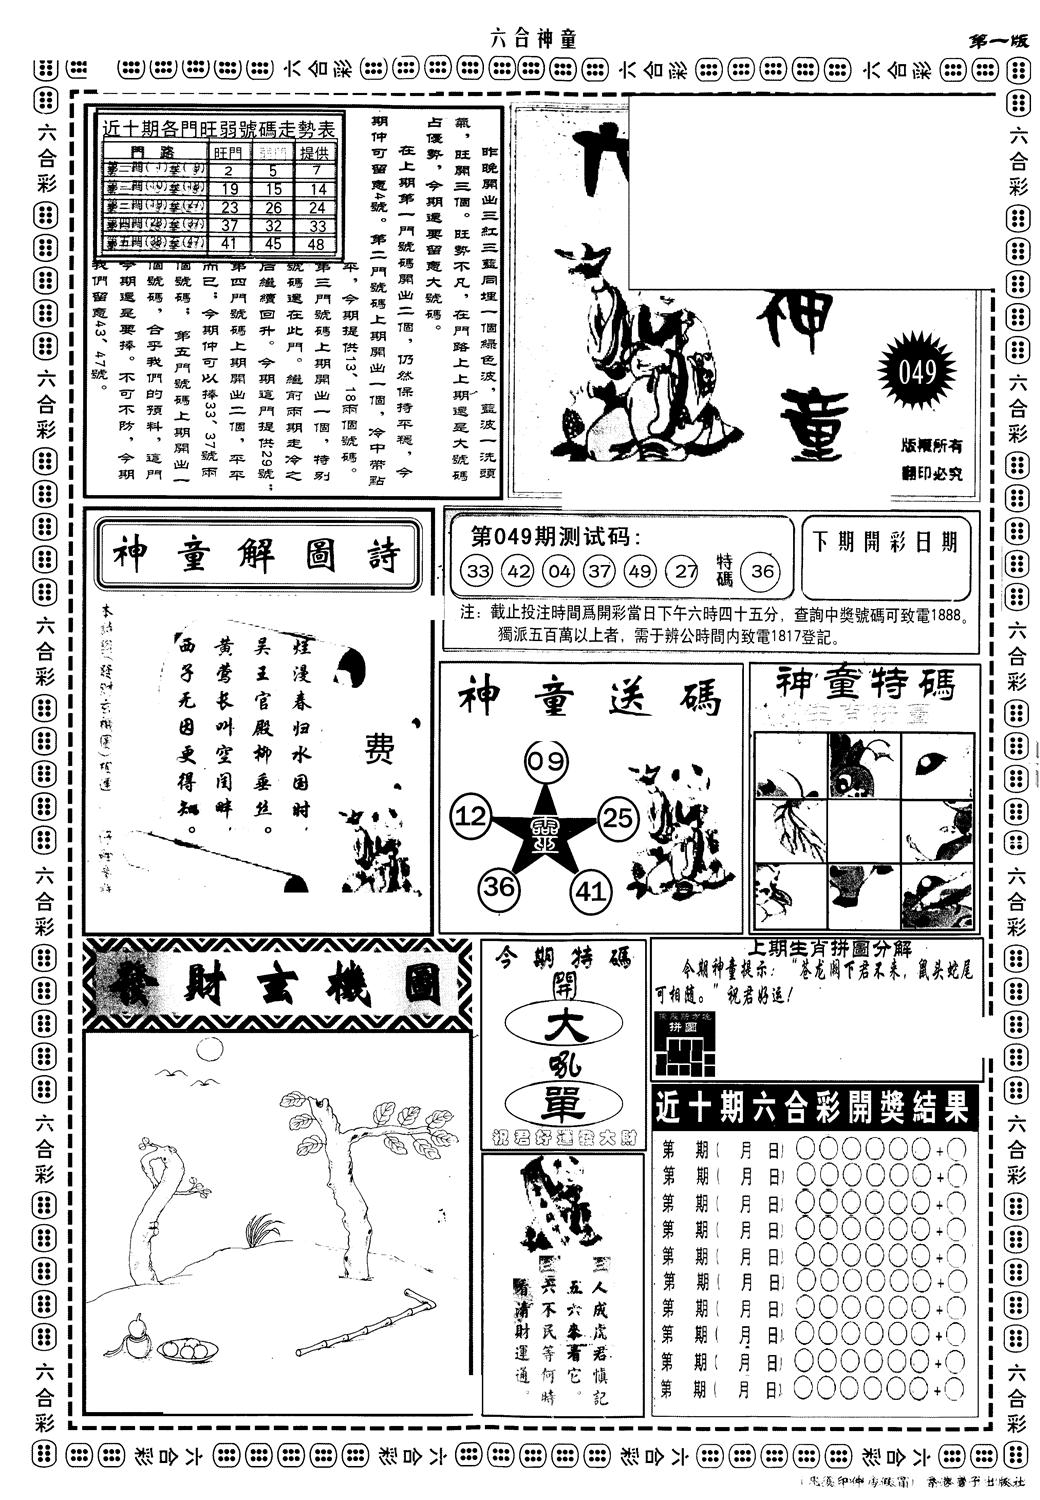 六合神童
第一版
近十期各門旺弱號碼走勢表
門 路 旺門 提供
2 5 7
19 15 14
23 26 24
37 32 33
41 45 48
昨晚開出三紅三藍同埋一個綠色波，藍波一洗頭
氣，旺開三個。旺勢不凡，在門路上上期還是大號碼
占優勢，今期還要留意大號碼。
在上期第一門號碼開出二個，仍然保持平穩，今
期仲可留意4號。第二門號碼上期開出一個，冷中帶點
平，今期提供13、18兩個號碼。
第三門號碼上期開出一個，特別
號碼還在此門。繼前兩期走冷之
后繼續回升。今期這門提供29號；
第四門號碼上期開出二個，平平
而已；今期仲可以捧33、37號兩
個號碼；第五門號碼上期開出一
個號碼，合乎我們的預料，這門
今期還是要捧。不可不防，今期
我們留意43、47號。
神
童
049
版權所有
翻印必究
神童解圖詩
烂漫春归水国时，
吴王宫殿柳垂丝。
黄莺长叫空闺畔，
西子无因更得知。
费
第049期测试码：
33 42 04 37 49 27 特碼 36
下期開彩日期
注：截止投注時間爲開彩當日下午六時四十五分，查詢中獎號碼可致電1888。
獨派五百萬以上者，需于辨公時間内致電1817登記。
神童送碼
09
12
25
靈
36
41
神童特碼
發財玄機圖
今期特碼
開
大
吼
單
祝君好運發大財
上期生肖拼圖分解
今期神童提示：“苍龙阁下君不来，鼠头蛇尾
可相随。”祝君好运！
拼圖
近十期六合彩開獎結果
第 期( 月 日)
第 期( 月 日)
第 期( 月 日)
第 期( 月 日)
第 期( 月 日)
第 期( 月 日)
第 期( 月 日)
第 期( 月 日)
第 期( 月 日)
第 期( 月 日)
人成虎君慎記
五六來看它。
六不民等何時
看清財運通。
六合彩